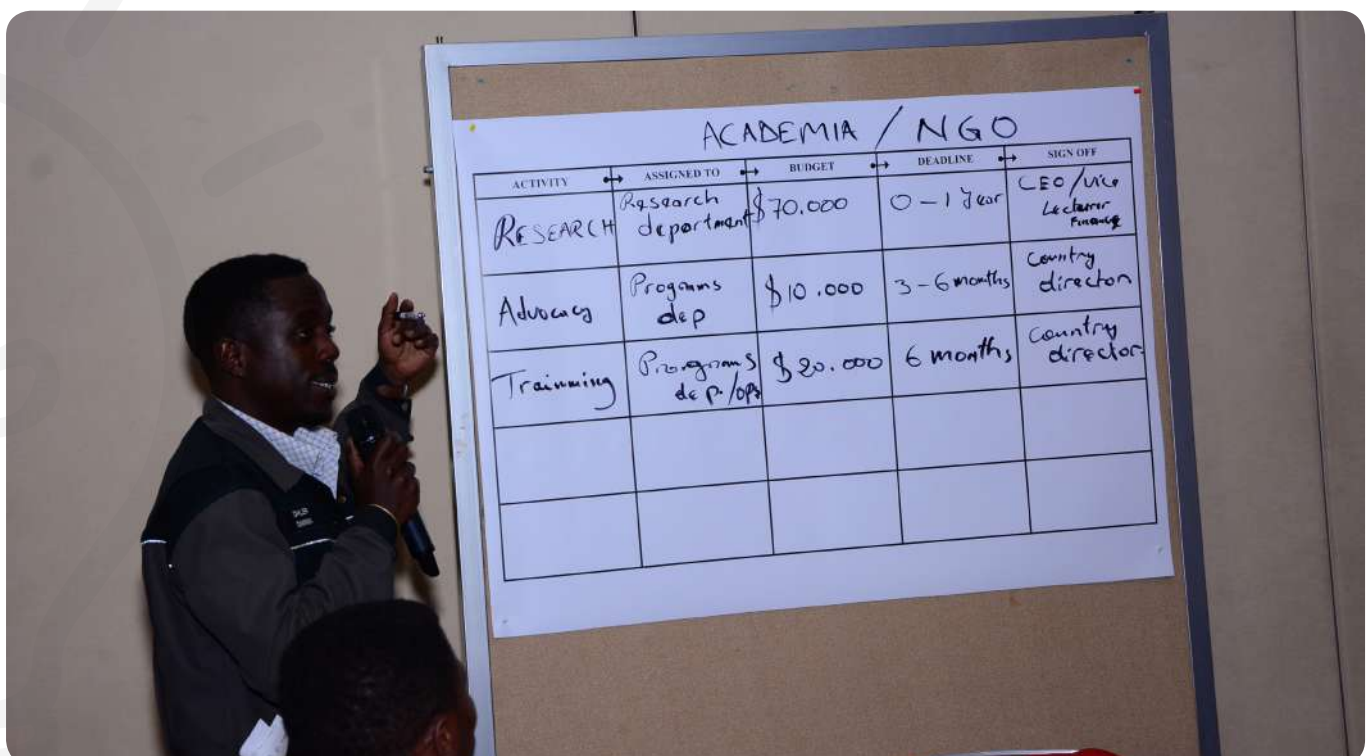 ACADEMIA / NGO
ACTIVITY ASSIGNED TO BUDGET DEADLINE SIGN OFF
RESEARCH Research department $70.000 0 - 1 Year CEO/Vice Lecturer Finance
Advocacy Programs dep $10.000 3 - 6 months Country director
Trainming Programs dep./ops $20.000 6 months Country director